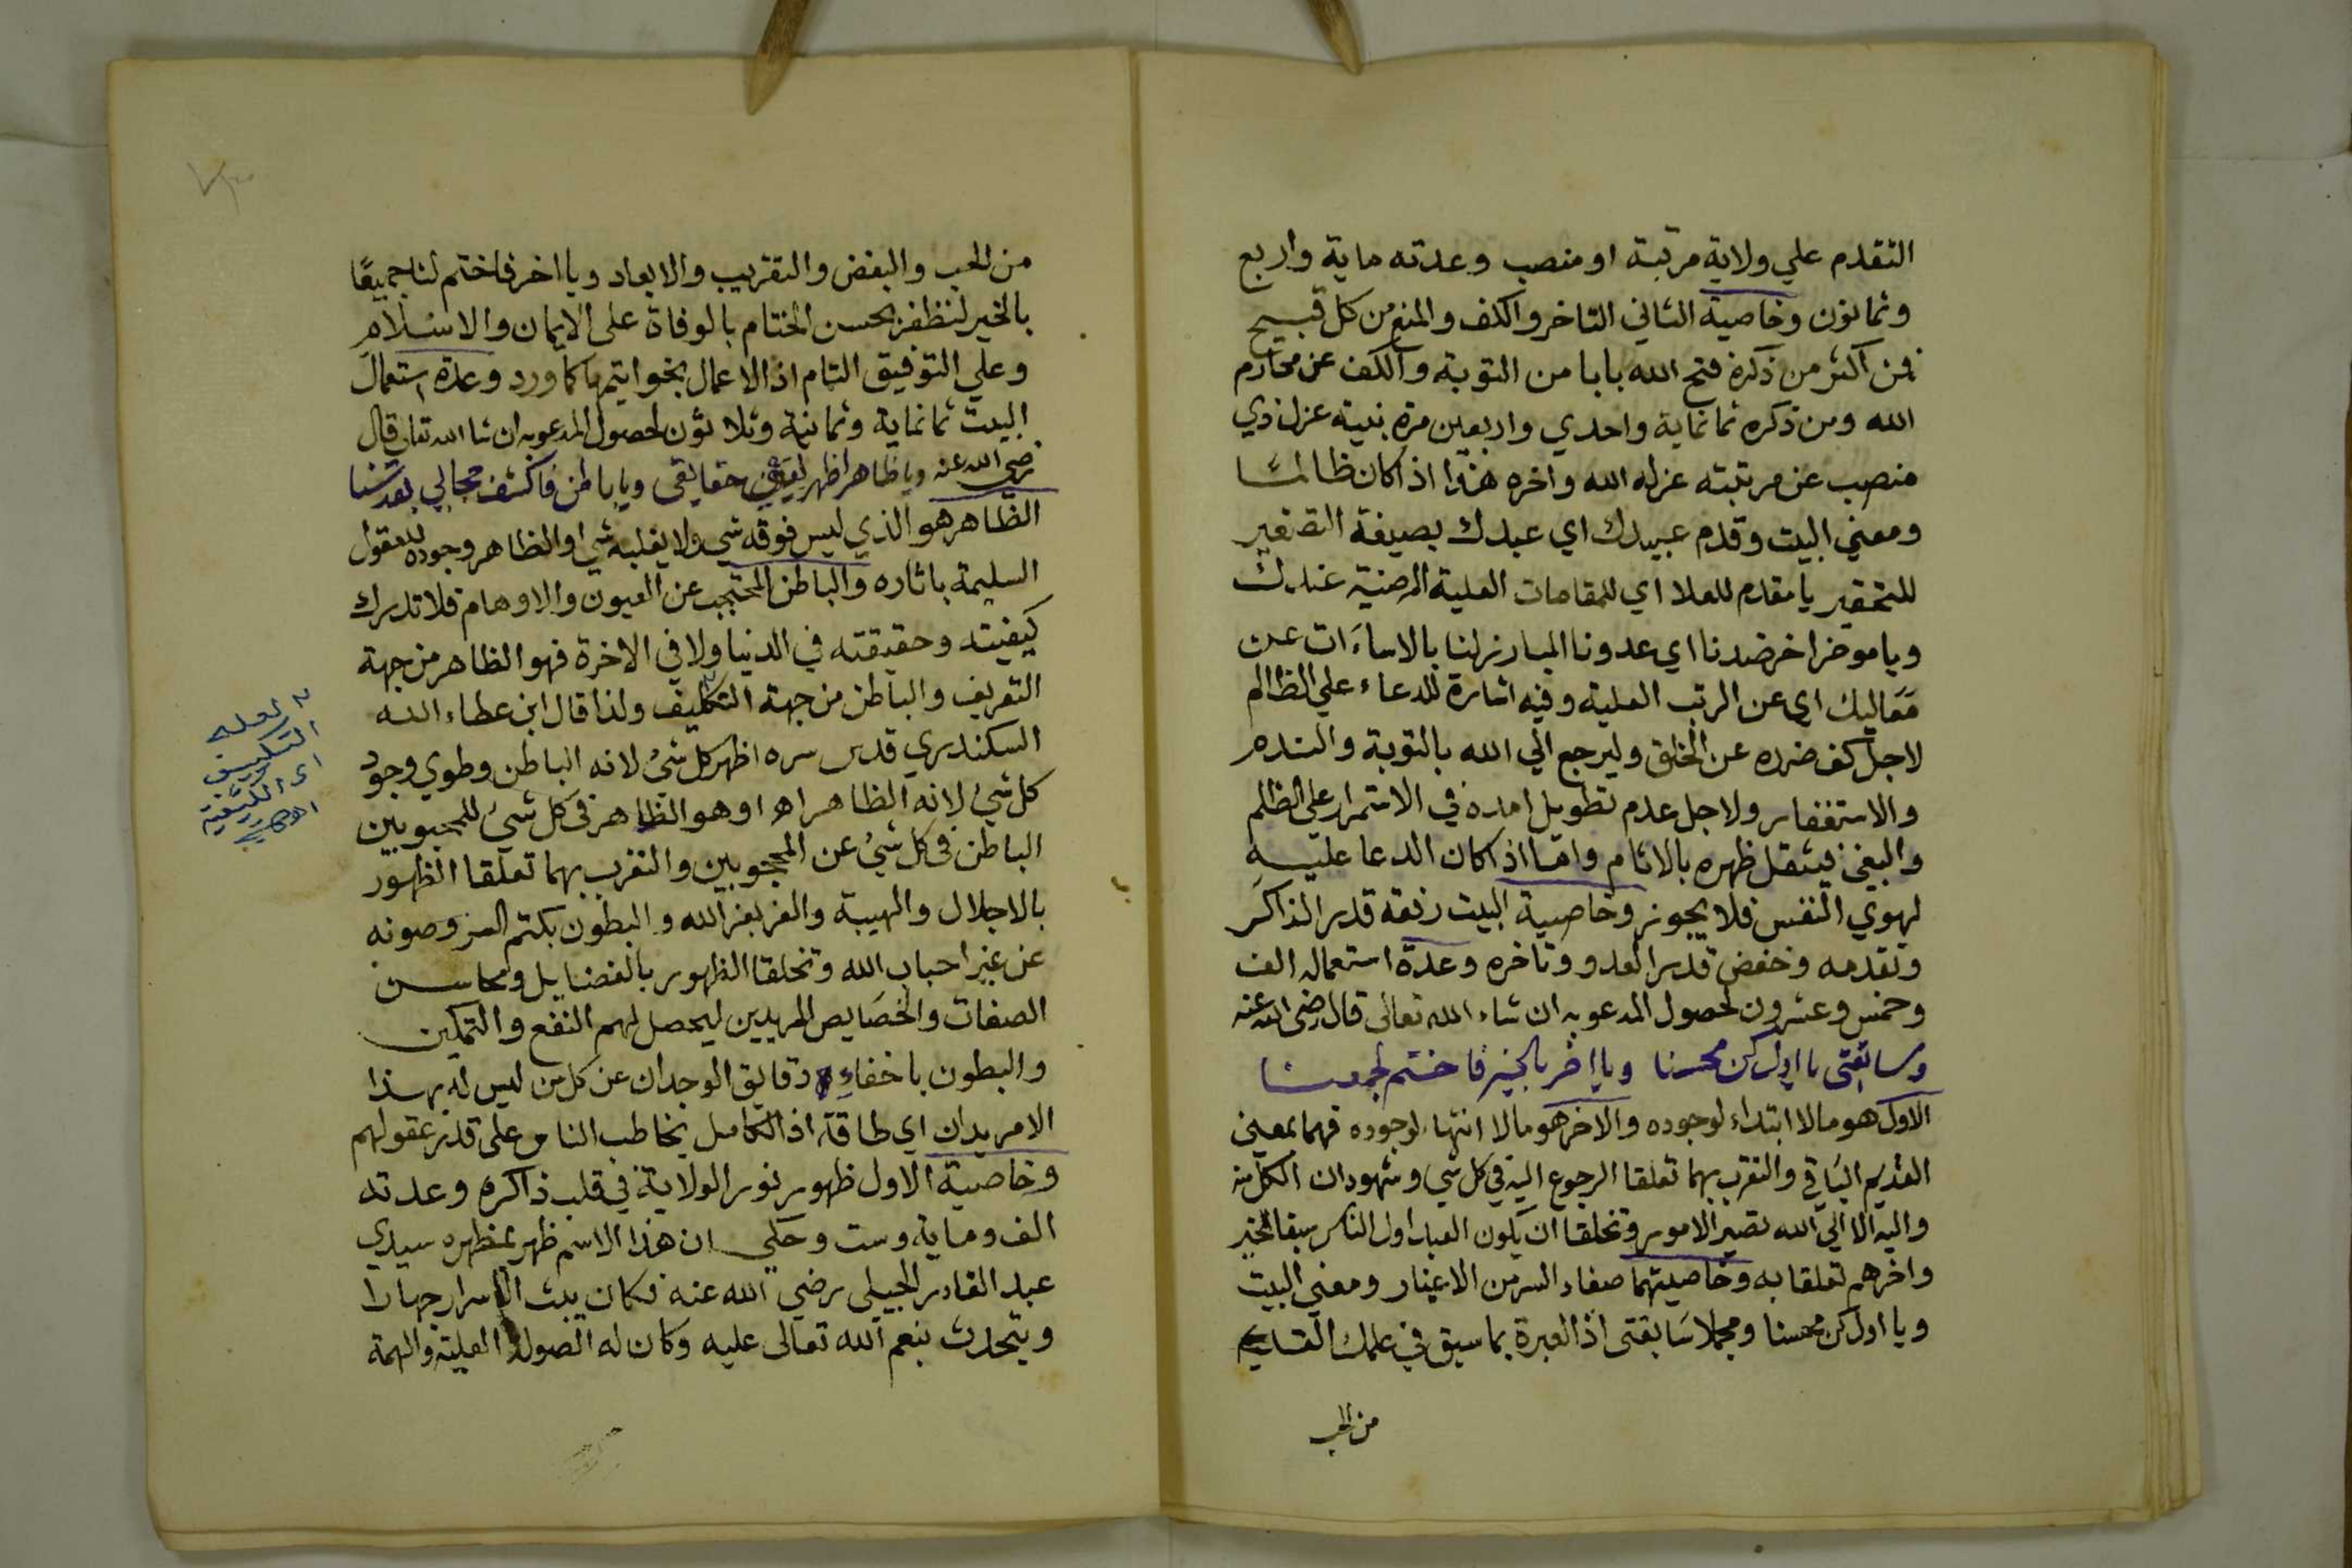 التقدم علي ولاية مرتبة او منصب وعدته ماية واربع
وثمانون وخاصية الثاني التاخر والكف والمنع من كل قبيح
فمن اكثر من ذكره فتح الله بابا من التوبة والكف عن محارم
الله ومن ذكره ثمانماية واحدي واربعين مرة بنية عزل ذي
منصب عن مرتبته عزله الله واخره هذا اذا كان ظالما
ومعني البيت وقدم عبيدك اي عبدك بصيغة التصغير
للتحقير يا مقدم للعلا اي للمقامات العلية المرضية عندك
ويا موخر اخر ضدنا اي عدونا المبارز لنا بالاساءات عن
معاليك اي عن الرتب العلية وفيه اشارة للدعاء علي الظالم
لاجل كف ضرره عن الخلق وليرجع الي الله بالتوبة والندم
والاستغفار ولاجل عدم تطويل امده في الاستمرار علي الظلم
والبغي فيثقل ظهره بالاثام واما اذا كان الدعا عليه
لهوي النفس فلا يجوز وخاصية البيت رفعة قدر الذاكر
وتقدمه وخفض قدر العدو وتاخره وعدة استعماله الف
وخمس وعشرون لحصول المدعو به ان شاء الله تعالى قال رضى الله عنه
وسابقتى يا اول كن محسنا ويا اخر بالخير فاختم لجمعنا
الاول هو ما لا ابتداء لوجوده والاخر هو ما لا انتهاء لوجوده فهما بمعنى
القديم الباقي والتقرب بهما تعلقا الرجوع اليه في كل شي وشهود ان الكل منه
واليه الا الي الله تصير الامور وتخلقا ان يكون العبد اول الناس سبقا لخير
واخرهم تعلقا به وخاصيتهما صفاء السر من الاغيار ومعني البيت
ويا اول كن محسنا ومجملا سابقتى اذ العبرة بما سبق في علمك القديم
من الحب
من الحب والبغض والتقريب والابعاد ويا اخر فاختم لنا جميعًا
بالخير لنظفر بحسن الختام بالوفاة على الايمان والاسلام
وعلي التوفيق التام اذ الاعمال بخواتيمها كما ورد وعدة استعمال
البيت ثمانماية وثمانية وثلاثون لحصول المدعو به ان شا الله تعالى قال
رضى الله عنه ويا ظاهرا ظهر لعيني حقايقى ويا باطن فاكشف حجابي بقدسنا
الظاهر هو الذي ليس فوقه شي ولا يغلبه شي او الظاهر وجوده للعقول
السليمة باثاره والباطن المحتجب عن العيون والاوهام فلا تدرك
كيفيته وحقيقته في الدنيا ولا في الاخرة فهو الظاهر من جهة
التعريف والباطن من جهة التكليف ولذا قال ابن عطاء الله
السكندري قدس سره اظهر كل شئ لانه الباطن وطوي وجود
كل شئ لانه الظاهر اهـ او هو الظاهر فى كل شئ للمحبوبين
الباطن فى كل شئ عن المحجوبين والتقرب بهما تعلقا الظهور
بالاجلال والهيبة والعز بعز الله والبطون بكتم السر وصونه
عن غير احباب الله وتخلقا الظهور بالفضايل ومحاسن
الصفات والخصايص للمريدين ليحصل لهم النفع والتمكين
والبطون باخفاء دقايق الوجدان عن كل من ليس له بهذا
الامر يدان اي طاقة اذ الكامل يخاطب الناس على قدر عقولهم
وخاصية الاول ظهور نور الولاية في قلب ذاكره وعدته
الف وماية وست وحكي ان هذا الاسم ظهر بمظهره سيدي
عبد القادر الجيلى رضي الله عنه فكان يبث الاسرار جهارا
ويتحدث بنعم الله تعالى عليه وكان له الصولة العلية والهمة
لعله
التكييف
اى الكيفية